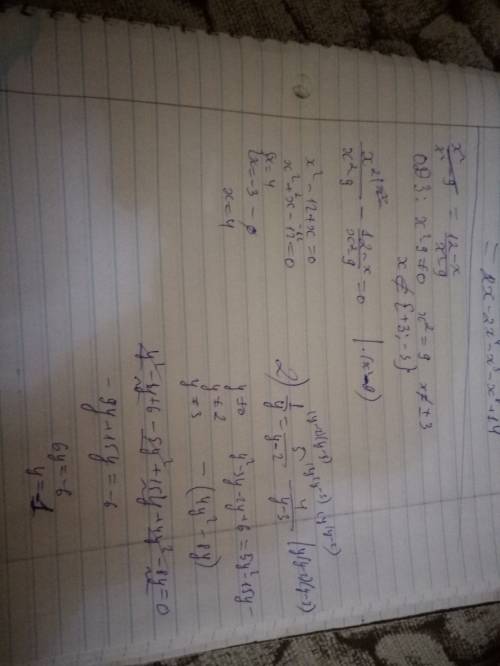 = 12x - 2x² - x³ - x² + 24
x²/(x²-9) = (12-x)/(x²-9)
ОДЗ: x²-9≠0 x²=9 x≠±3
x≠{+3;-3}
x²/(x²-9) - (12-x)/(x²-9) = 0 | ·(x²-9)
x² - 12 + x = 0
x² + x - 12 = 0
x = 4
x = -3 - ø
x = 4
2) 1/y = 5/(y-2) - 4/(y-3) | y(y-2)(y-3)
y≠0
y≠2
y≠3
y²-3y-2y+6 = 5y²-15y-
- (4y²-8y)
y²-5y+6-5y²+15y+4y²-8y=0
- 9y+15y=-6
6y=-6
y=-1